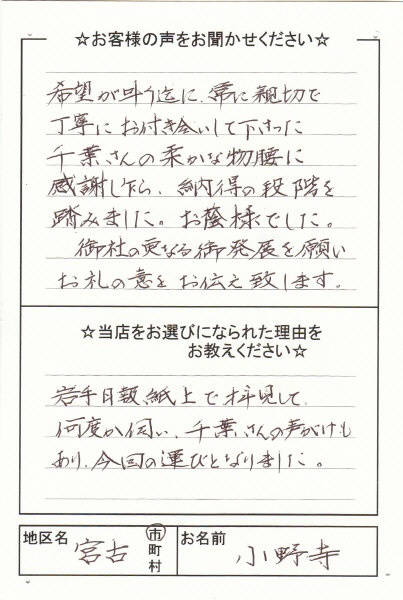 ☆お客様の声をお聞かせください☆
希望が叶う迄に、常に親切で
丁寧にお付き合いして下さった
千葉さんの柔かな物腰に
感謝し乍ら、納得の段階を
踏みました。お蔭様でした。
御社の更なる御発展を願い
お礼の意をお伝え致します。
☆当店をお選びになられた理由を
お教えください☆
岩手日報紙上で拝見して、
何度か伺い、千葉さんの声がけも
あり、今回の運びとなりました。
地区名 宮古 市町村 お名前 小野寺